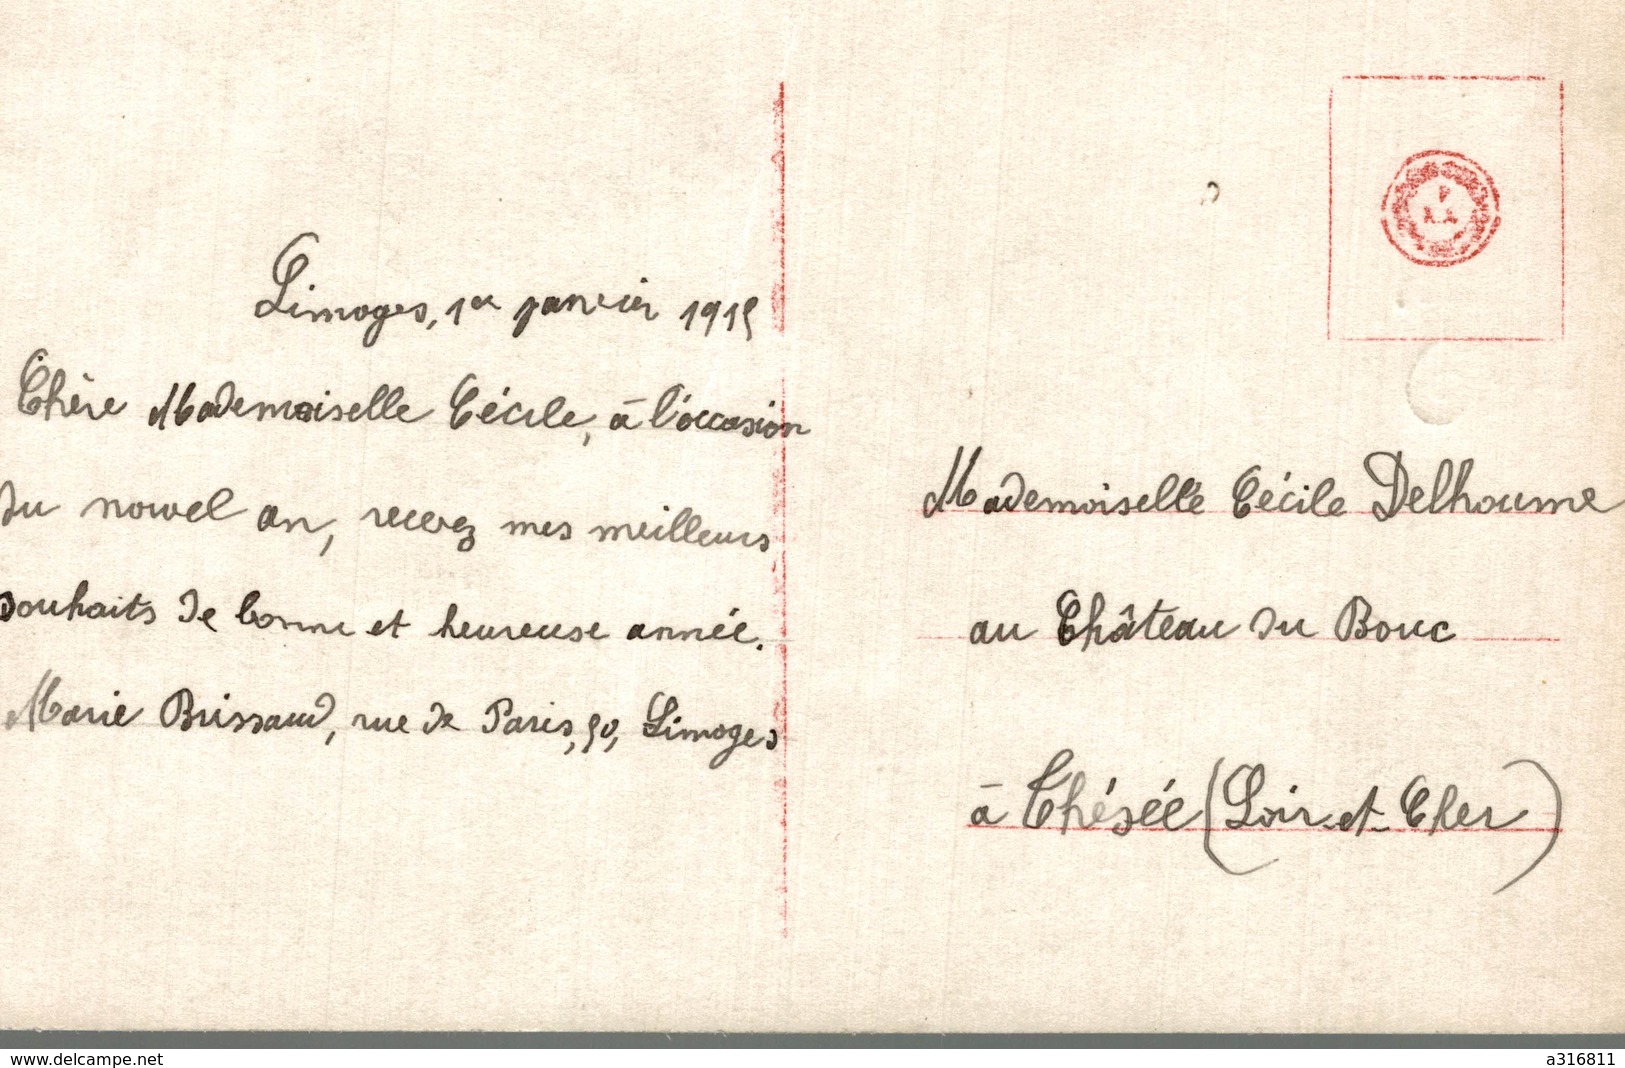 Limoges, 1er janvier 1915
Chère Mademoiselle Cécile, à l'occasion
du nouvel an, recevez mes meilleurs
souhaits de bonne et heureuse année.
Marie Brissaud, rue de Paris, 50, Limoges
Mademoiselle Cécile Delhoume
au Château du Bouc
à Thésée (Loir-et-Cher)
www.delcampe.net
a316811